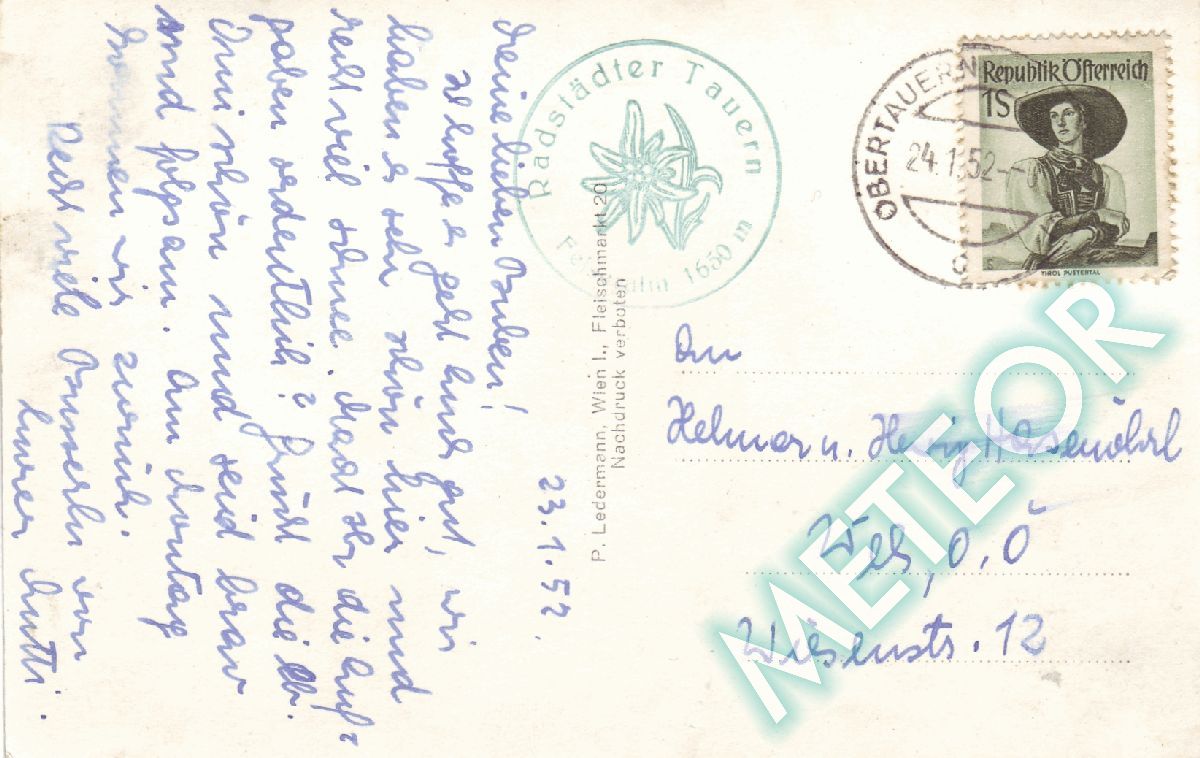 23.1.52.
Meine lieben Buben!
Ich hoffe es geht Euch gut, wir
haben es sehr schön hier und
recht viel Schnee. Macht Ihr die Auf-
gaben ordentlich? Grüßt die lb.
Omi schön und seid brav
und folgsam. Am Sonntag
kommen wir zurück.
Recht viele Busserln von
Eurer Mutti.
Radstädter Tauern
1650 m
P. Ledermann, Wien I., Fleischmarkt 20
Nachdruck verboten
OBERTAUERN
24.1.52
Republik Österreich
1S
TIROL PUSTERTAL
An
Helmar u. Herwig
Wels, O.Ö
Wiesenstr. 12
METEOR